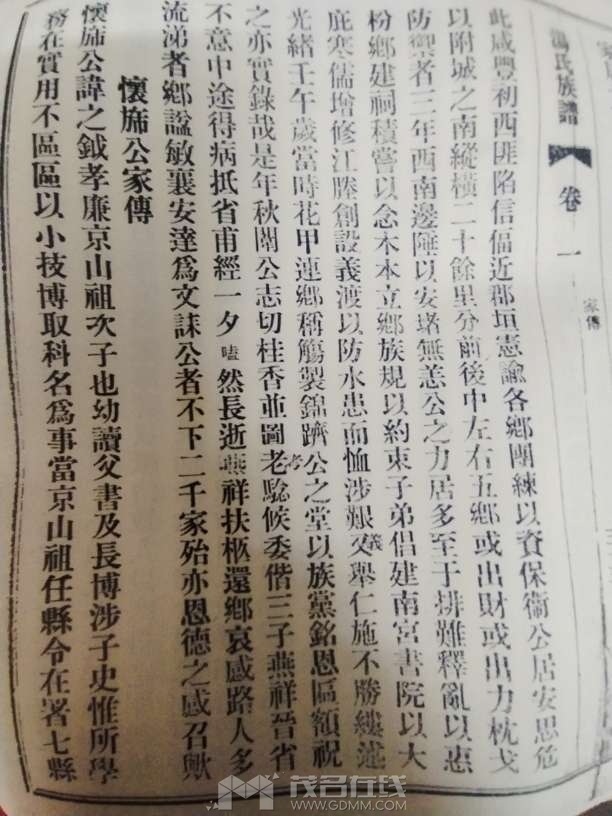 馮氏族譜 卷一 家傳
此咸豐初西匪陷信偪近郡垣憲諭各鄉團練以資保衞公居安思危
以附城之南縱橫二十餘里分前後中左右五鄉或出財或出力枕戈
防禦者三年西南邊陲以安堵無恙公之力居多至于排難釋亂以惠
枌鄉建祠積嘗以念木本立鄉族規以約束子弟倡建南宮書院以大
庇寒儒增修江塍創設義渡以防水患而恤涉艱義舉仁施不勝縷述
光緒壬午歲當時花甲連鄉稱觴製錦躋公之堂以族黨銘恩區額祝
之亦實錄哉是年秋闈公志切桂香並圖老考騐候委偕三子燕祥晉省
不意中途得病抵省甫經一夕嗑然長逝燕祥扶柩還鄉哀感路人多
流涕者鄉謚敏襄安達爲文誄公者不下二千家殆亦恩德之感召歟
懷斾公家傳
懷斾公諱之鉞孝廉京山祖次子也幼讀父書及長博涉子史惟所學
務在實用不區區以小技博取科名爲事當京山祖任縣令在署七縣
茂名在线
WWW.GDMM.COM